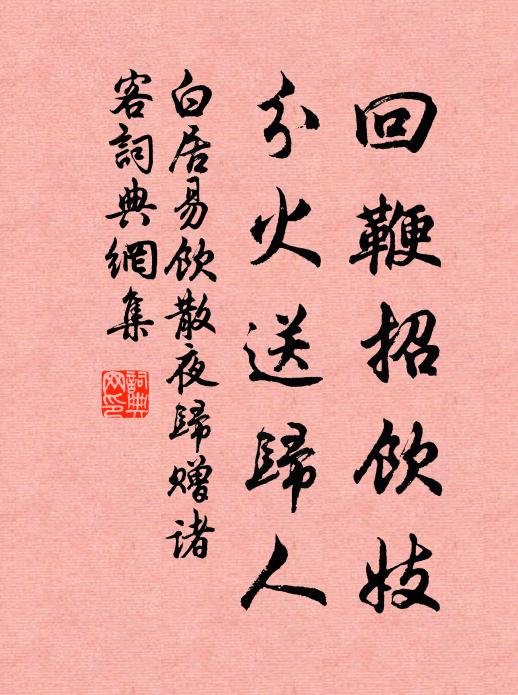 回鞭招飲妓
分火送歸人
白居易飲散夜歸赠诸
客詞典網集
詞典网印